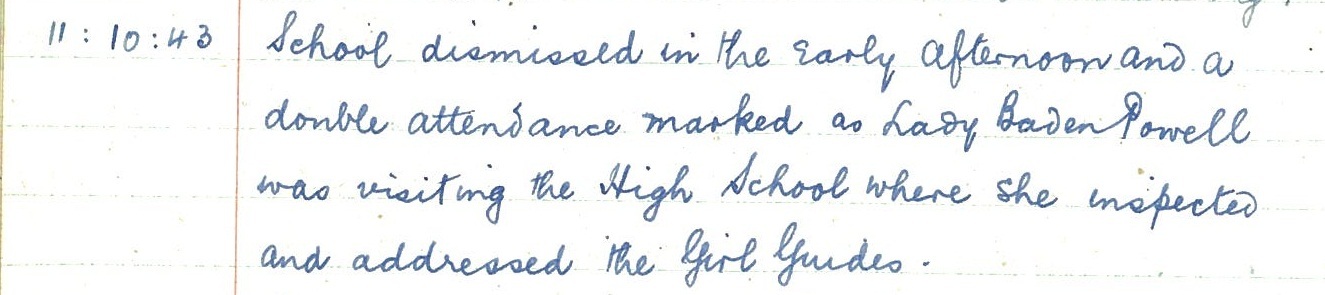 11:10:43 School dismissed in the Early Afternoon and a
double attendance marked as Lady Baden Powell
was visiting the High School where she inspected
and addressed the Girl Guides.